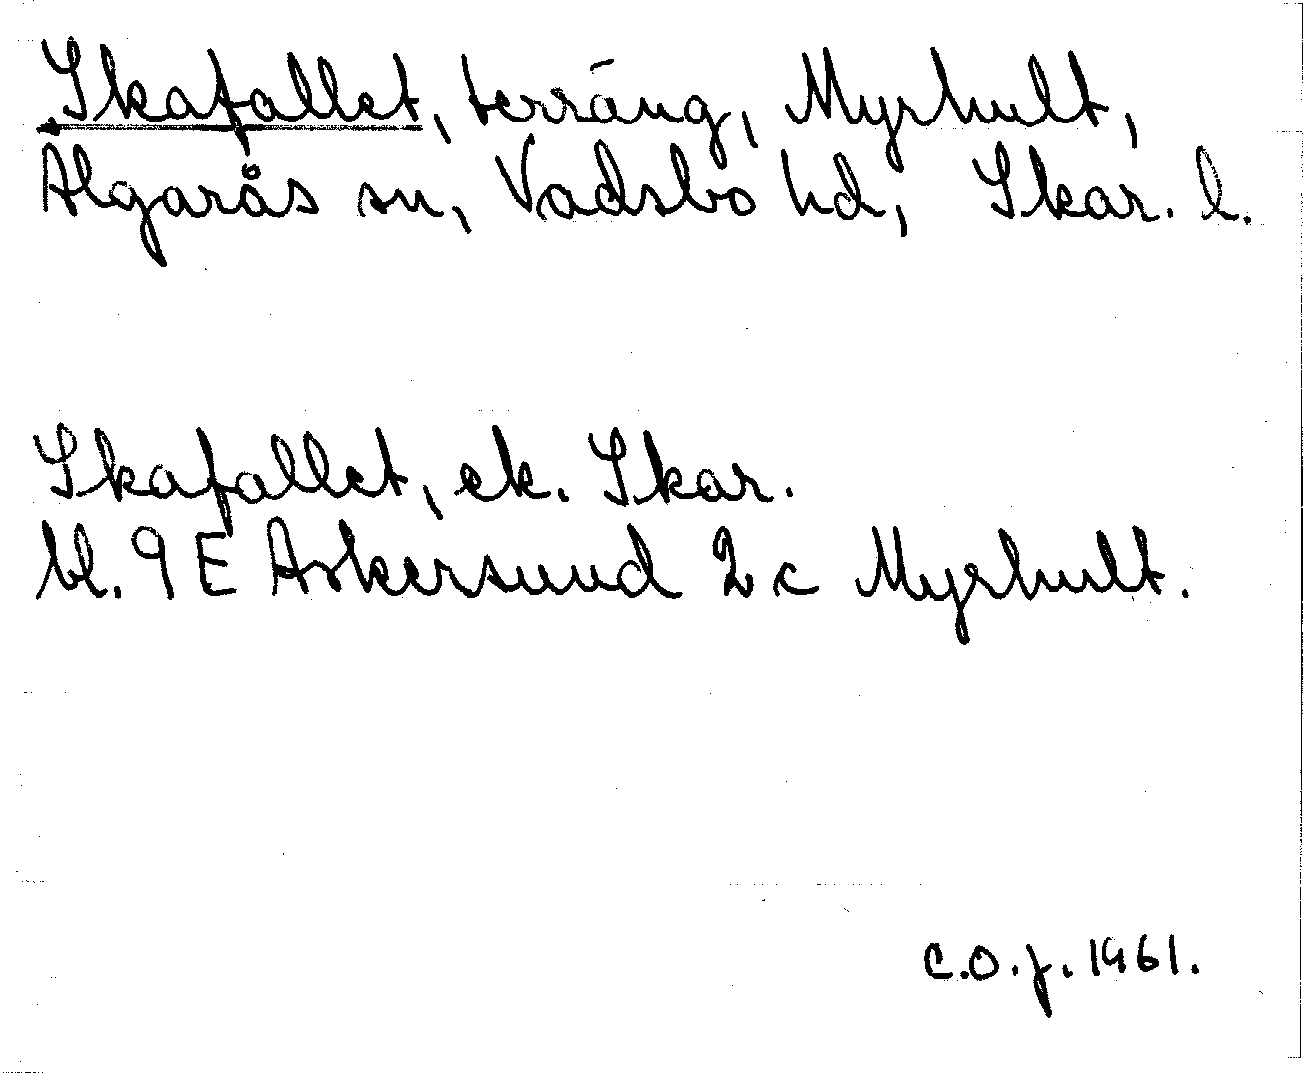 Skafallet, terräng, Myrhult,
Algarås sn, Vadsbo hd, Skar. l.
Skafallet, ek. Skar.
bl. 9 E Askersund 2 c Myrhult.
C.O.f. 1961.